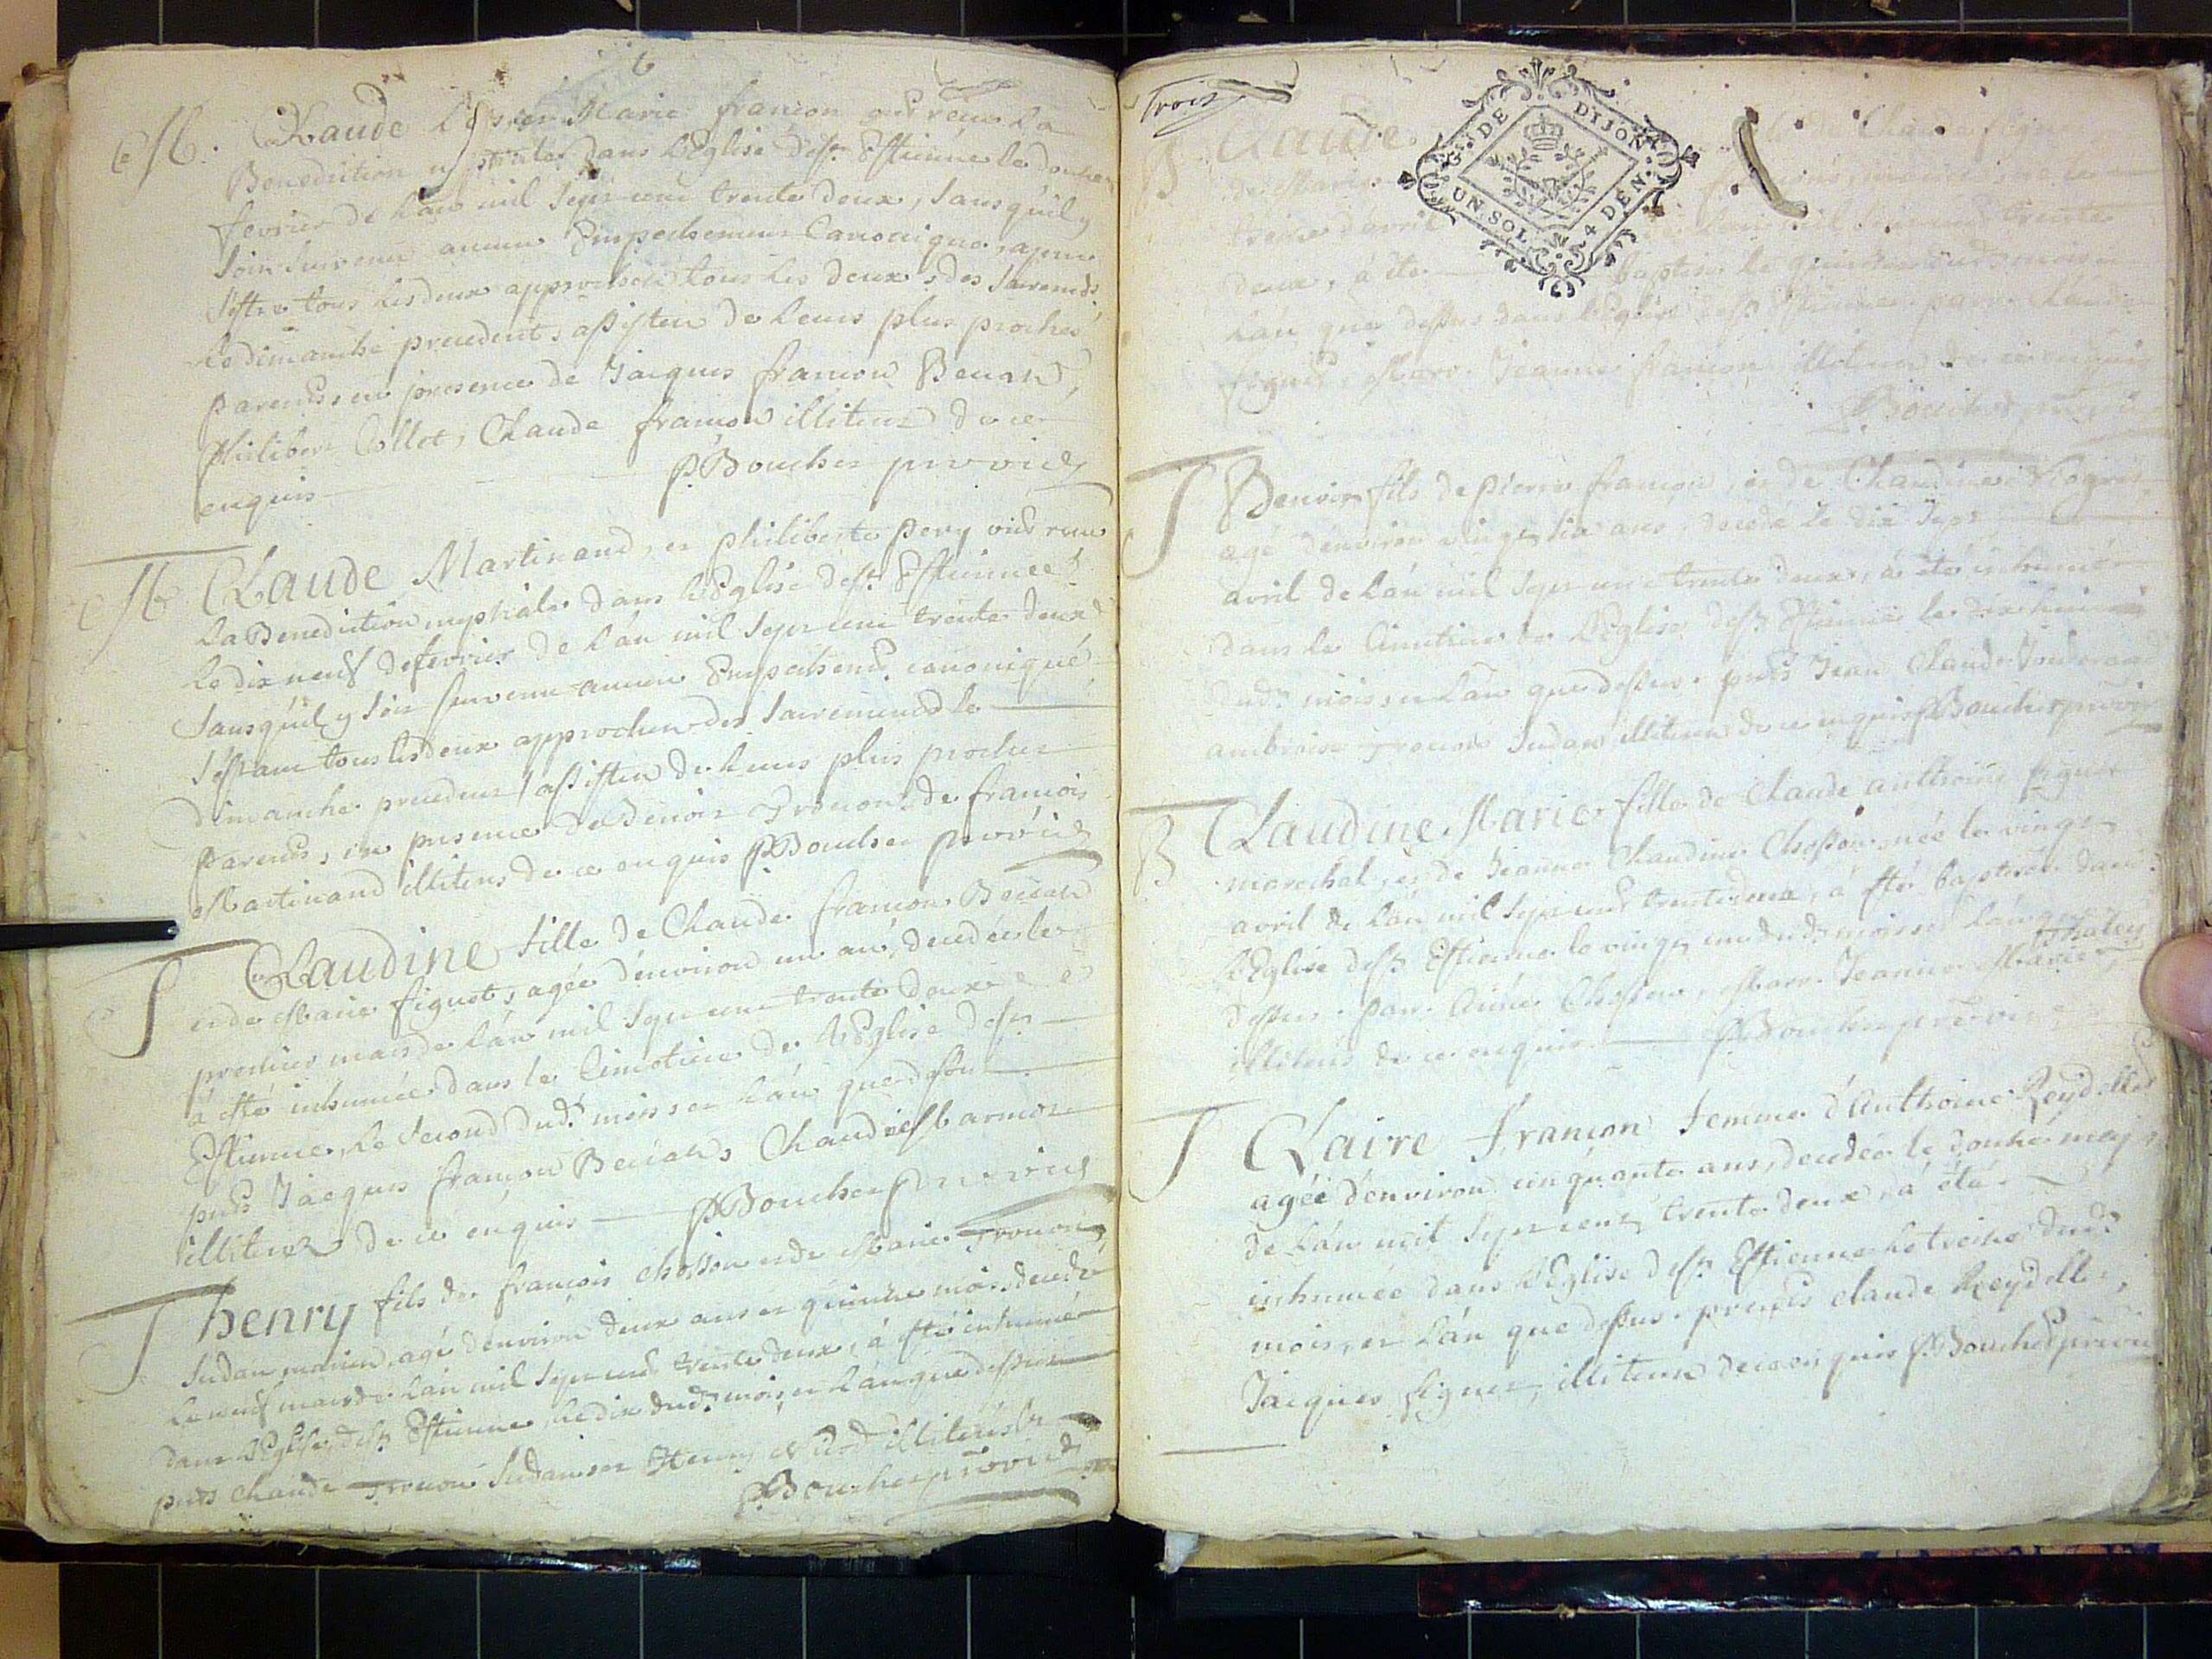 M. Claude et Marie françon ont reçus La
Benediction nuptiale dans L'Eglise de st Estienne le douze
fevrier de L'an mil sept cent trente deux, sans qu'il y
soit survenu aucun Empechement Canonique, apres
s'estre tous les deux approchés des sacrements
Le dimanche precedent, assistez de Leurs plus proches
parents, en presence de Jacques françon Beuard,
philibert Collot, Claude françon illiterez de ce
enquis P Boucher pro vic
M Claude Martinand, et philiberte pery ont reçu
La Benediction nuptiale dans L'Eglise de st Estienne
Le dix neuf de fevrier de L'an mil sept cent trente deux
sans qu'il y soit survenu aucun Empechemt canonique
s'estant tous les deux approchez des sacrements le
dimanche precedent, assistez de Leurs plus proches
parents, en presence de Benoit de francois
Martinand illiterez de ce enquis P Boucher pro vic
T Claudine fille de Claude françon Beuard
et de Marie figuet, agée d'environ un an, decedée le
premier mars de L'an mil sept cent trente deux
a esté inhumée dans le Cimetiere de L'Eglise de st
Estienne, Le second dudt mois et L'an que dessus
pnts Jacques françon Beuard, Claude
illiterez de ce enquis P Boucher pro vic
T henry fils de françois chosson et de Marie
Sudan maries, agé d'environ deux ans et quinze mois, decedé
Le neuf mars de L'an mil sept cent trente deux, a esté inhumé
dans L'Eglise de st Estienne, Le dix dudt mois, et L'an que dessus
pnts Claude Sudan et Henry illiterez
P Boucher pro vic
Trois
G. DE DIJON.
UN SOL. N. 4 DEN.
B Claude
de Marie
treize d'avril de L'an mil sept cent trente
deux, a ete baptisé le quinze dudt mois
L'an que dessus dans L'Eglise de st Estienne. par. Claude
figuet, Mare. Jeanne françon, illiterez de ce enquis
P Boucher
T Benoit fils de pierre françon, et de Claudine
agé d'environ vingt six ans, decedé le dix sept
avril de L'an mil sept cent trente deux, a été inhumé
dans le Cimetiere de L'Eglise de st Estienne le dix huit
dudt mois et L'an que dessus. pnts Jean Claude
ambroise Sudan illiterez de ce enquis P Boucher pro vic
B Claudine Marie fille de Claude anthoine figuet
marechal, et de Jeanne Claudine Chosson, née le vingt
avril de L'an mil sept cent trente deux, a esté baptisée dans
L'Eglise de st Estienne le vingt un dudt mois et L'an que
dessus. par. Aimé Chosson, Mare. Jeanne Marie
illiterez de ce enquis P Boucher pro vic
T Claire françon femme d'Anthoine Reydellet
agée d'environ cinquante ans, decedée le douze may
de L'an mil sept cent trente deux, a été
inhumée dans L'Eglise de st Estienne Le treize dudt
mois, et L'an que dessus. presents claude Reydellet,
Jacques figuet, illiterez de ce enquis P Boucher pro vic